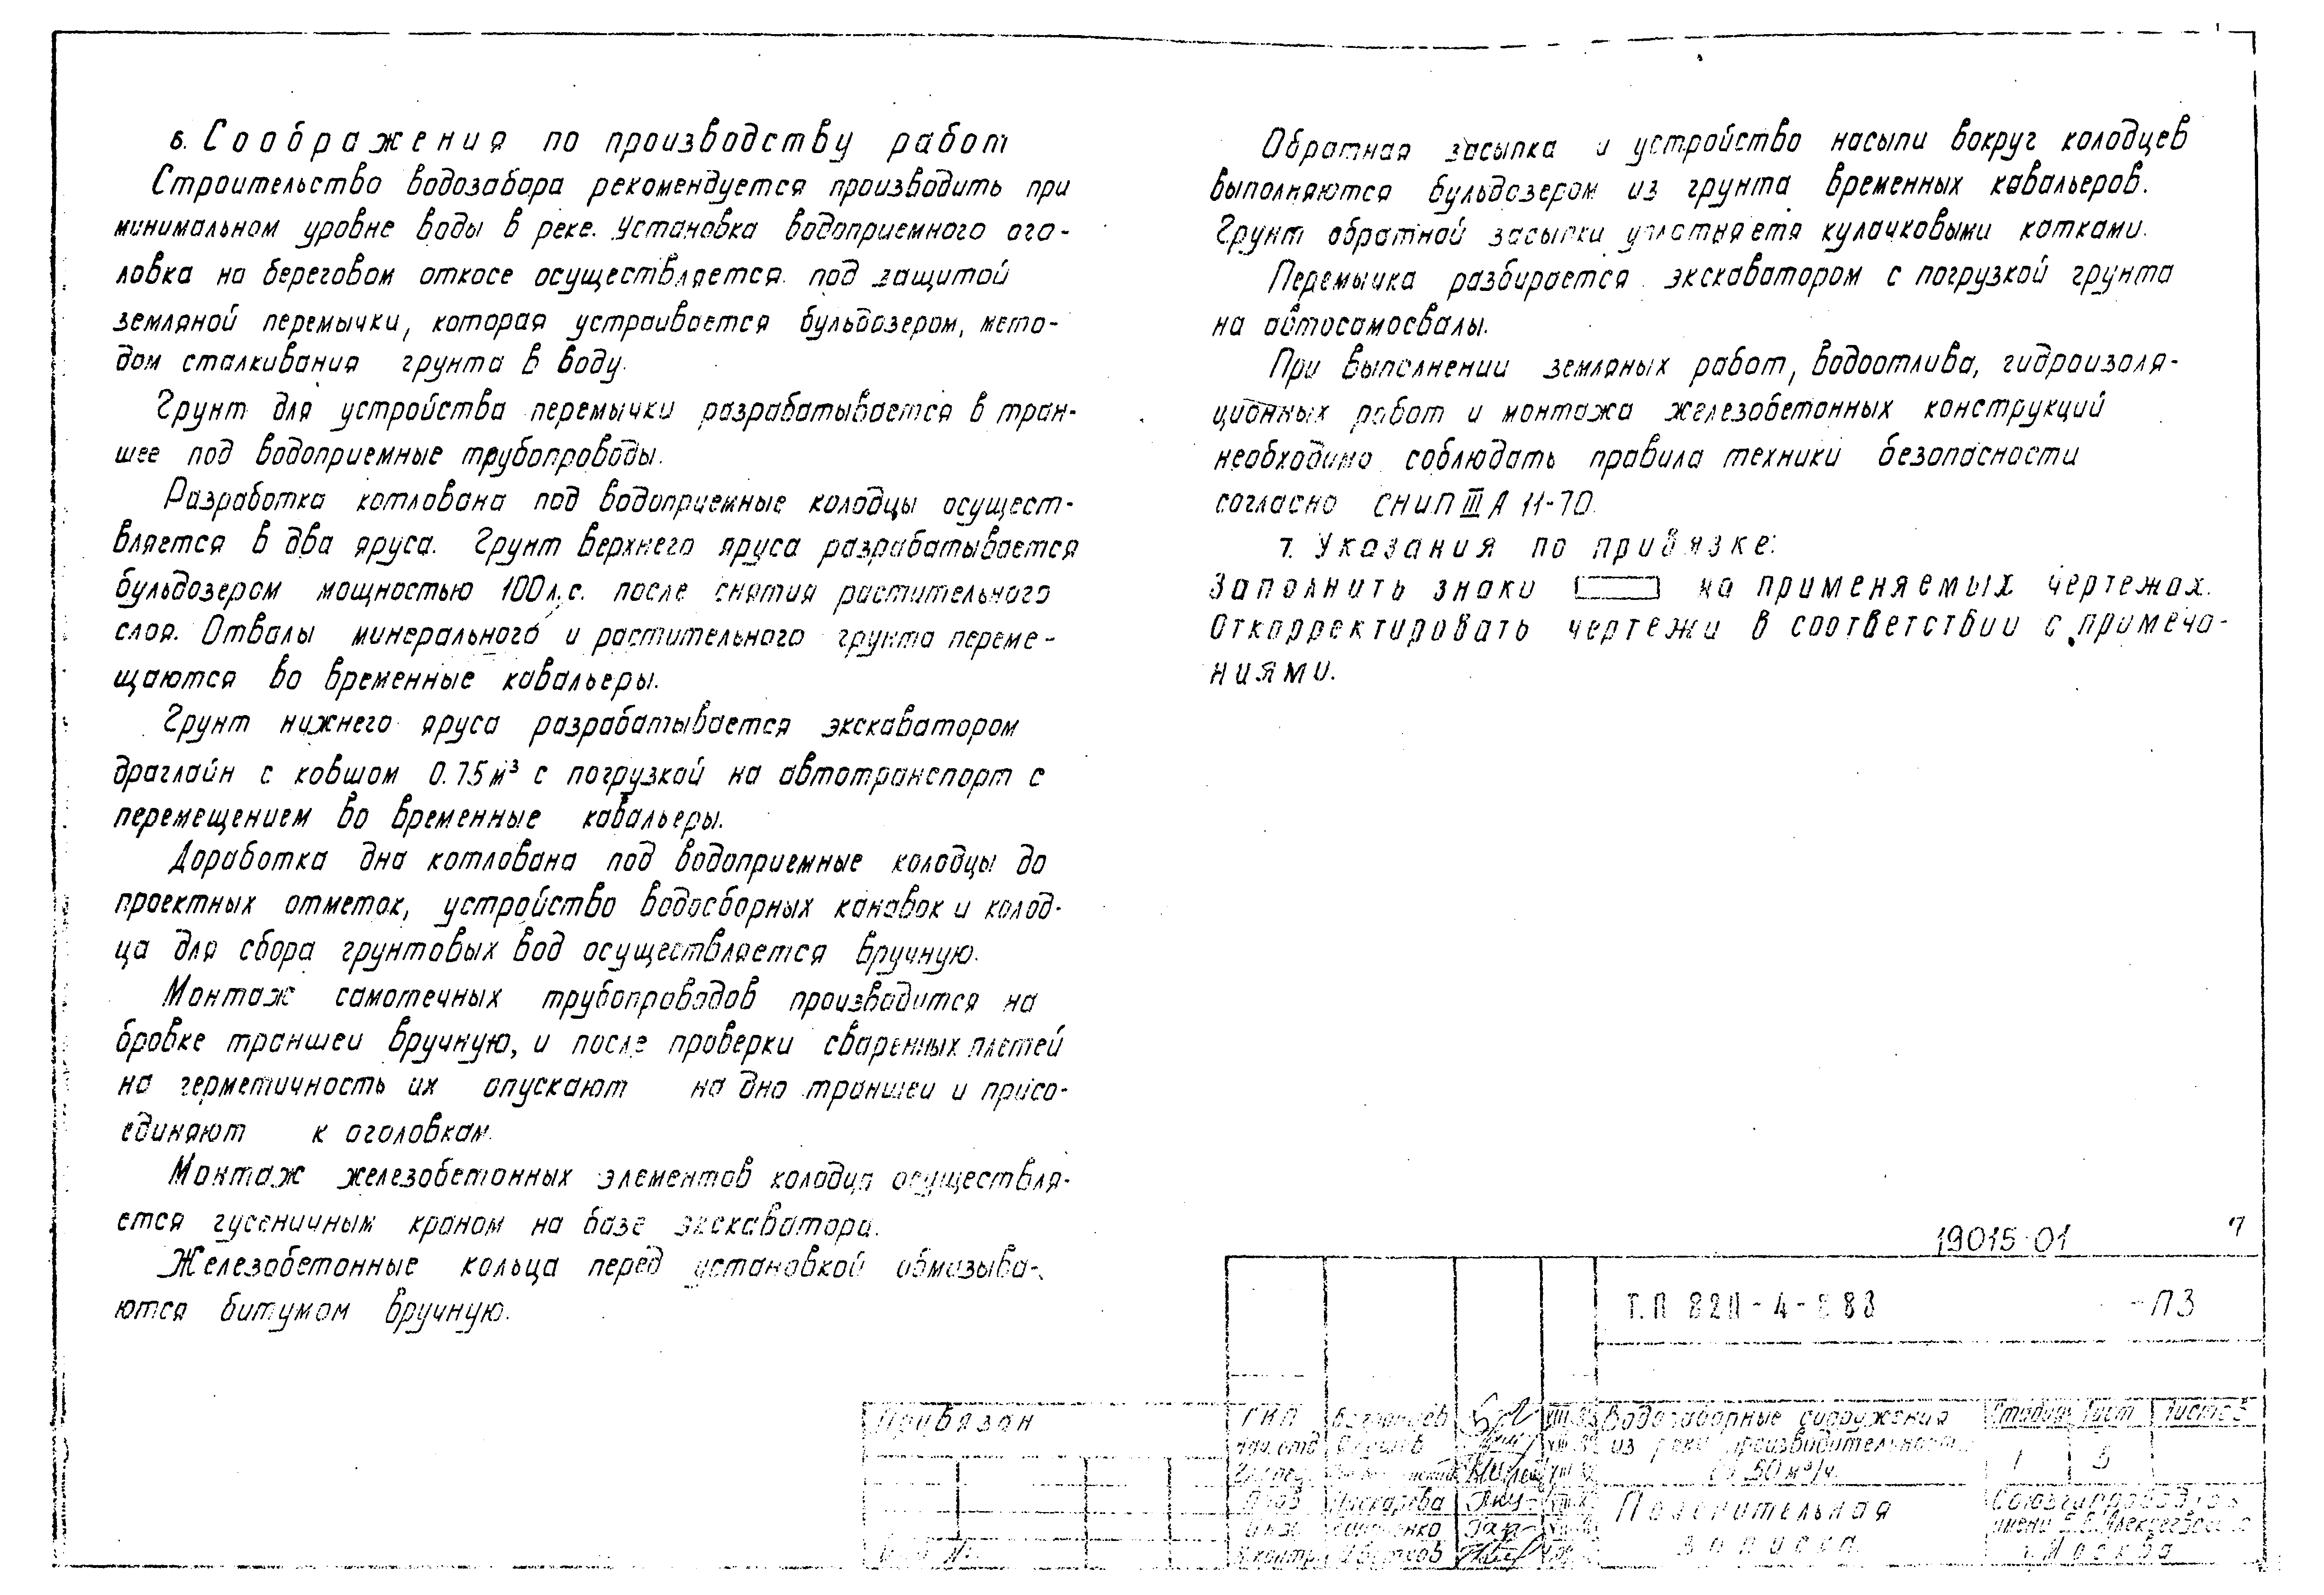 6. Соображения по производству работ
Строительство водозабора рекомендуется производить при
минимальном уровне воды в реке. Установка водоприемного ого-
ловка на береговом откосе осуществляется под защитой
земляной перемычки, которая устраивается бульдозером, мето-
дом сталкивания грунта в воду.
Грунт для устройства перемычки разрабатывается в тран-
шее под водоприемные трубопроводы.
Разработка котлована под водоприемные колодцы осущест-
вляется в два яруса. Грунт верхнего яруса разрабатывается
бульдозером мощностью 100 л.с. после снятия растительного
слоя. Отвалы минерального и растительного грунта переме-
щаются во временные кавальеры.
Грунт нижнего яруса разрабатывается экскаватором
драглайн с ковшом 0.75 м³ с погрузкой на автотранспорт с
перемещением во временные кавальеры.
Доработка дна котлована под водоприемные колодцы до
проектных отметок, устройство водосборных канавок и колод-
ца для сбора грунтовых вод осуществляется вручную.
Монтаж самотечных трубопроводов производится на
бровке траншеи вручную, и после проверки сваренных плетей
на герметичность их опускают на дно траншеи и присо-
единяют к оголовкам.
Монтаж железобетонных элементов колодца осуществля-
ется гусеничным краном на базе экскаватора.
Железобетонные кольца перед установкой обмазыва-
ются битумом вручную.
Обратная засыпка и устройство насыпи вокруг колодцев
выполняются бульдозером из грунта временных кавальеров.
Грунт обратной засыпки уплотняетя кулачковыми катками.
Перемычка разбирается экскаватором с погрузкой грунта
на автосамосвалы.
При выполнении земляных работ, водоотлива, гидроизоля-
ционных работ и монтажа железобетонных конструкций
необходимо соблюдать правила техники безопасности
согласно СНиП III А 11-70.
7. Указания по привязке:
Заполнить знаки на применяемых чертежах.
Откорректировать чертежи в соответствии с примеча-
ниями.
19015-01 7
Т.П 820-4- -ПЗ
Привязан
ГИП
Нач.отд
Водозаборные сооружения
из реки производительност
50 м³/ч.
Стадия Лист Листов
5
Пояснительная
записка
Н.контр.
г. Москва